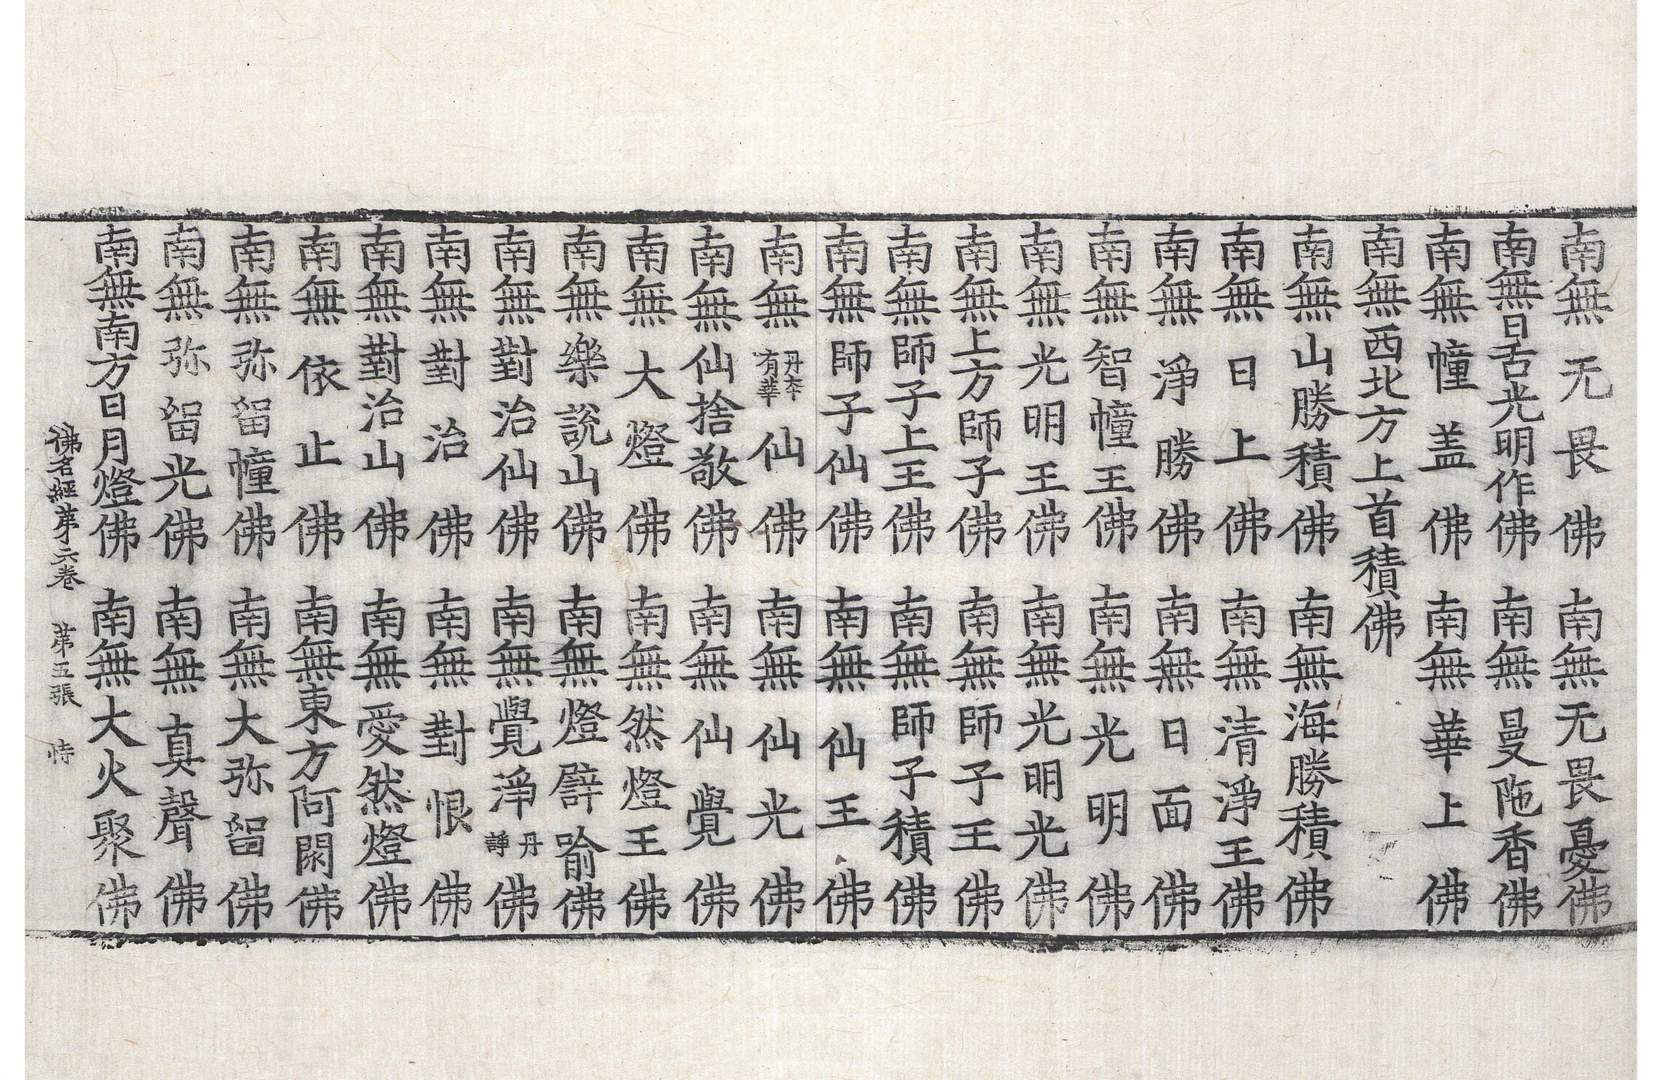 南無无畏佛 南無无畏憂佛
南無日舌光明作佛 南無曼陁香佛
南無幢盖佛 南無華上佛
南無西北方上首積佛
南無山勝積佛 南無海勝積佛
南無日上佛 南無清淨王佛
南無淨勝佛 南無日面佛
南無智幢王佛 南無光明佛
南無光明王佛 南無光明光佛
南無上方師子佛 南無師子王佛
南無師子上王佛 南無師子積佛
南無師子仙佛 南無仙王佛
南無丹本有華仙佛 南無仙光佛
南無仙捨敬佛 南無仙覺佛
南無大燈佛 南無然燈王佛
南無樂說山佛 南無燈譬喻佛
南無對治仙佛 南無覺淨丹諍佛
南無對治佛 南無對恨佛
南無對治山佛 南無愛然燈佛
南無依止佛 南無東方阿閦佛
南無弥留幢佛 南無大弥留佛
南無弥留光佛 南無真聲佛
南無南方日月燈佛 南無大火聚佛
佛名經第六卷 第五張 恃